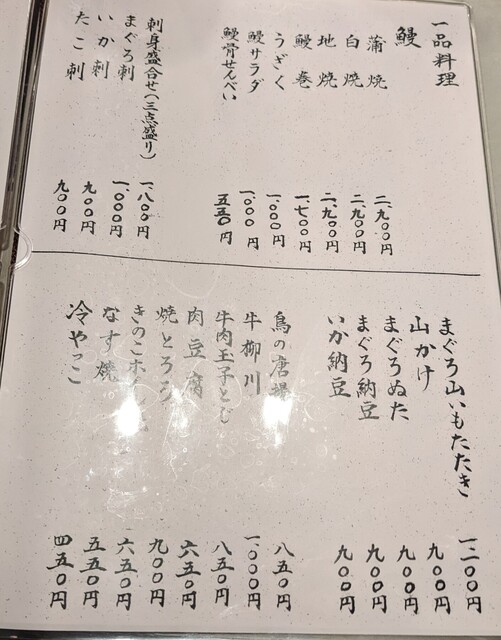 一品料理
鰻
蒲焼 二、九〇〇円
白焼 二、九〇〇円
地焼 二、九〇〇円
鰻巻 一、七〇〇円
うざく 一、〇〇〇円
鰻サラダ 一、〇〇〇円
鰻骨せんべい 五五〇円
刺身盛合せ(三点盛り) 一、八〇〇円
まぐろ刺 一、〇〇〇円
いか刺 九〇〇円
たこ刺 九〇〇円
まぐろ山いもたたき 一、二〇〇円
山かけ 九〇〇円
まぐろぬた 九〇〇円
まぐろ納豆 九〇〇円
いか納豆 九〇〇円
鳥の唐揚 八五〇円
牛柳川 一、〇〇〇円
牛肉玉子とじ 八五〇円
肉豆腐 六五〇円
焼とろろ 九〇〇円
きのこホイル 六五〇円
なす焼 五五〇円
冷やっこ 四五〇円